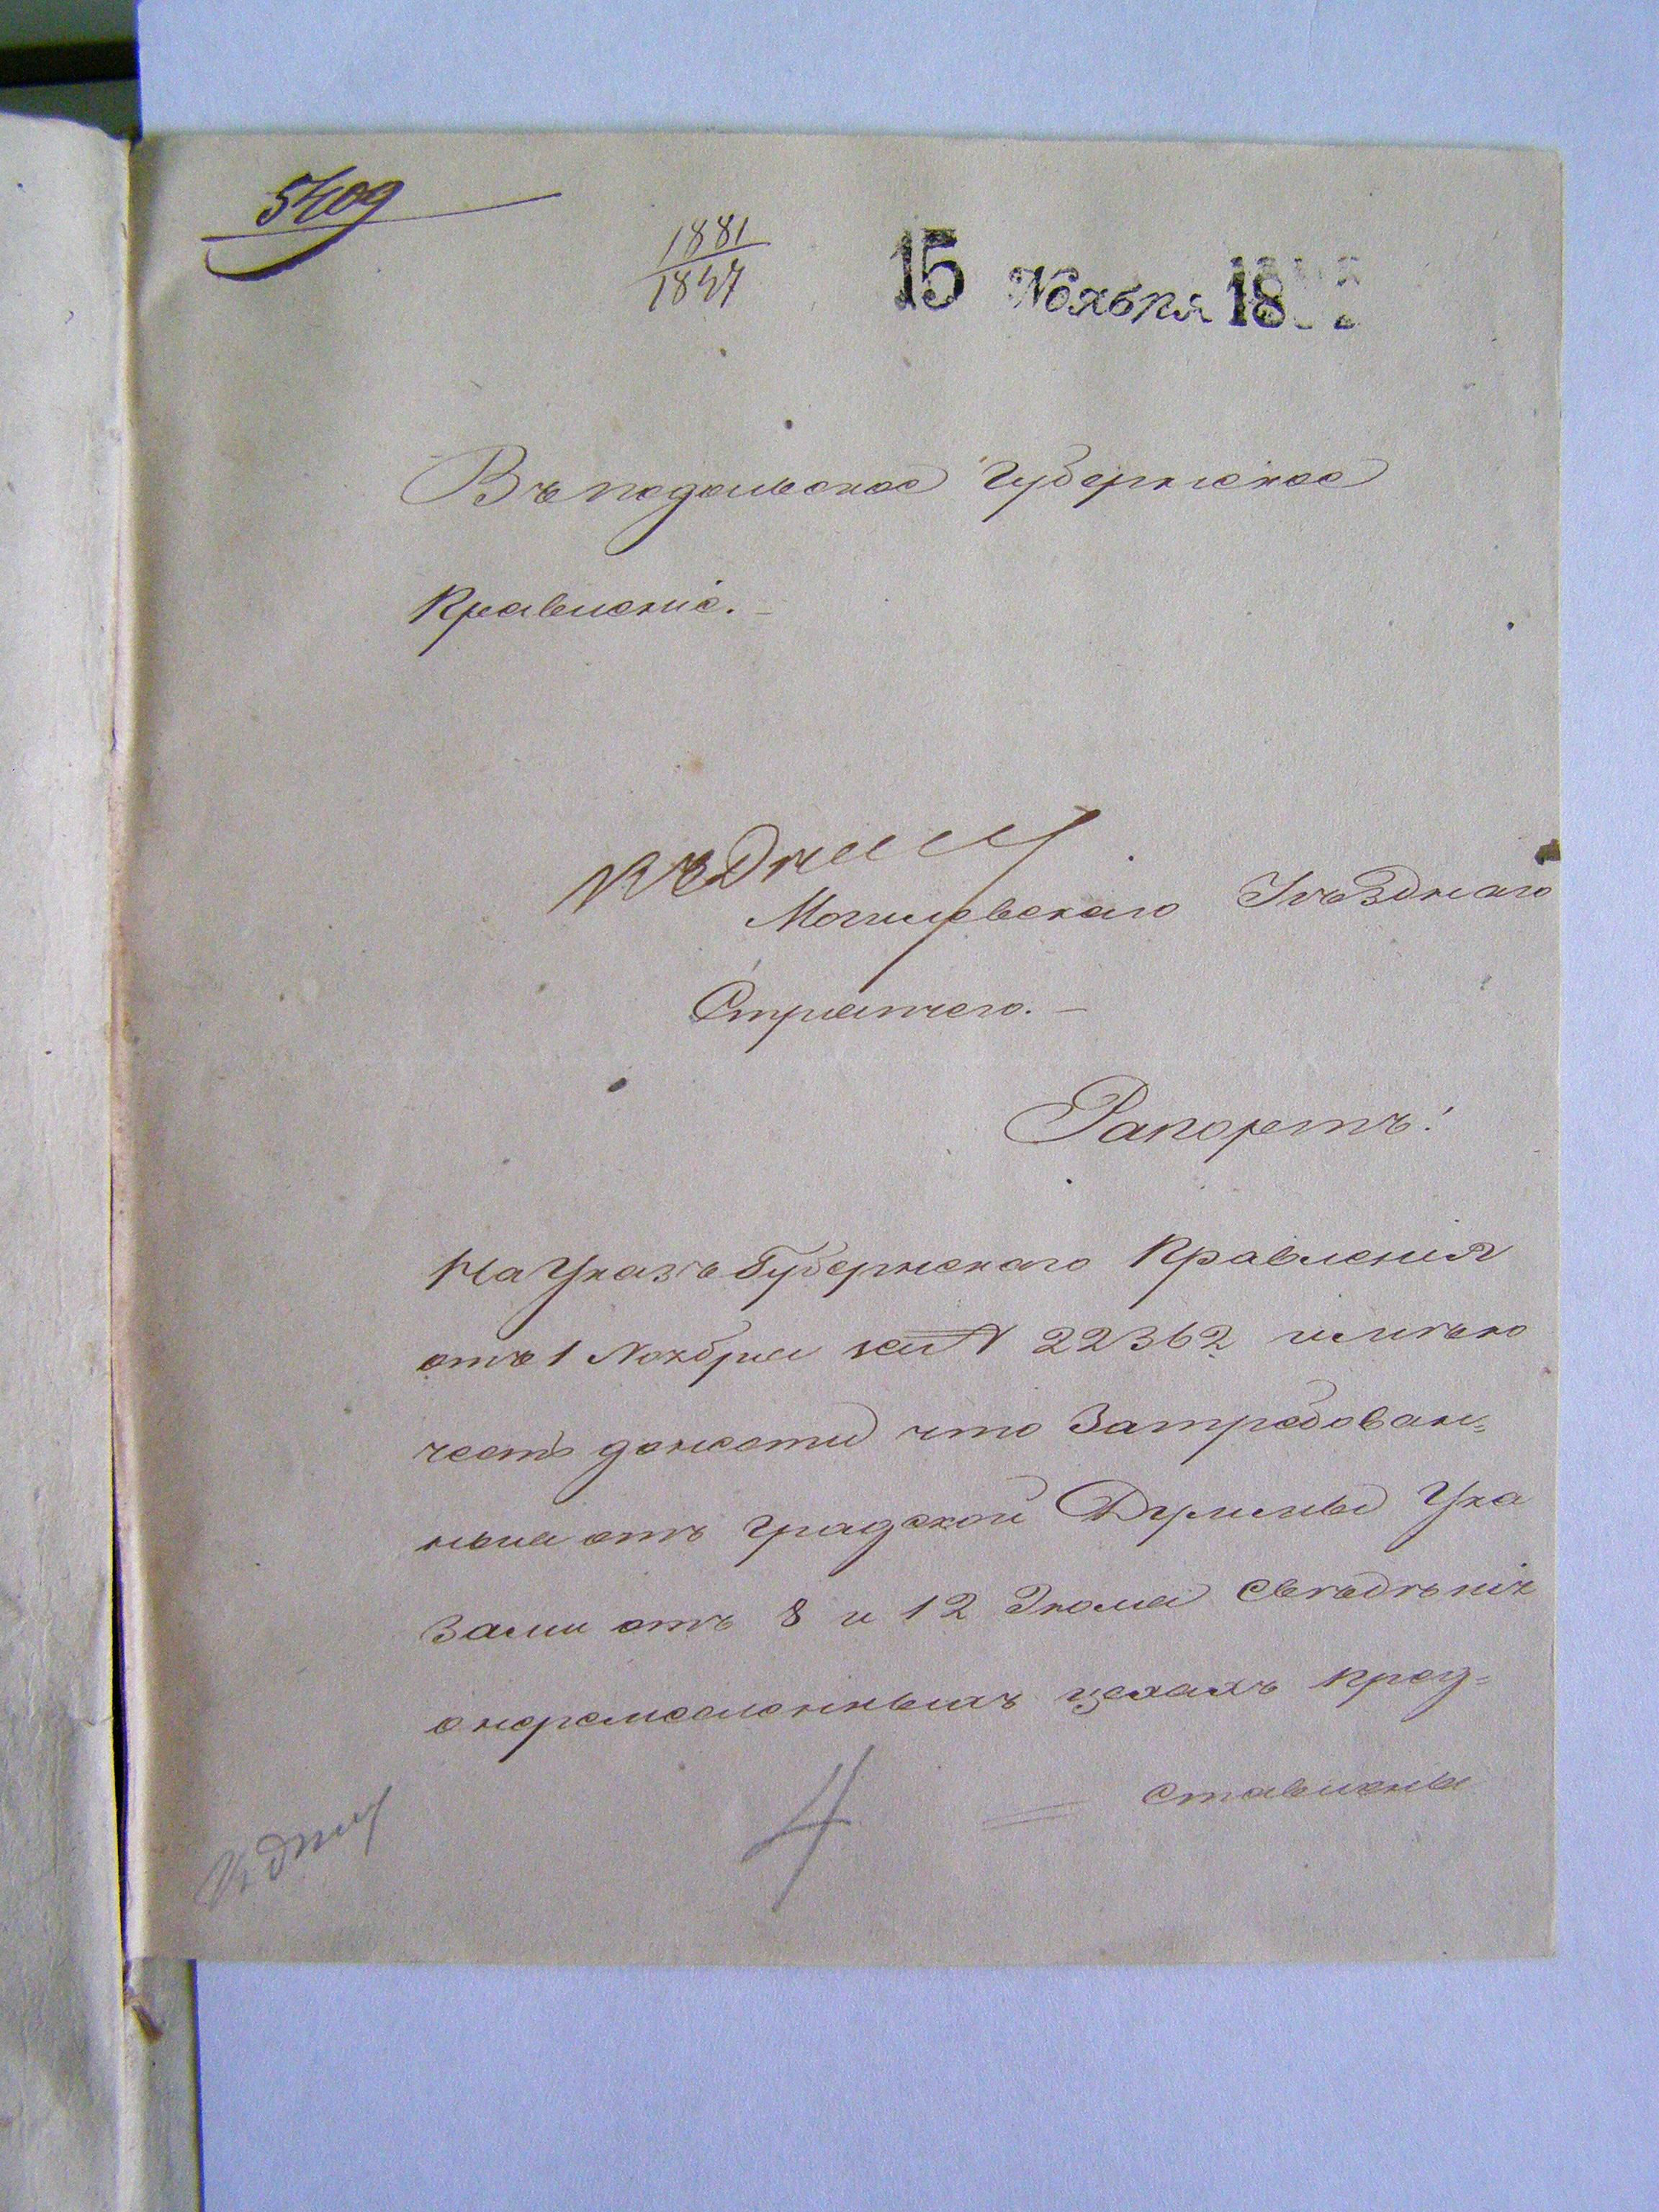 5409
1881
1847
15 Ноября 18
Въ подольское Губернское
Правленіе. –
Къ Дѣлу
Могилевскаго Уѣзднаго
Стряпчего. –
Рапортъ!
На Указъ Губернского Правленія
отъ 1 Ноября за № 22362 имѣю
честь донести что Затребован=
ныя отъ градской Думы Ука
зами отъ 8 и 12 Іюля Свѣдѣнія
о неремесленныхъ цехахъ пред=
ставлены
4
К дѣлу